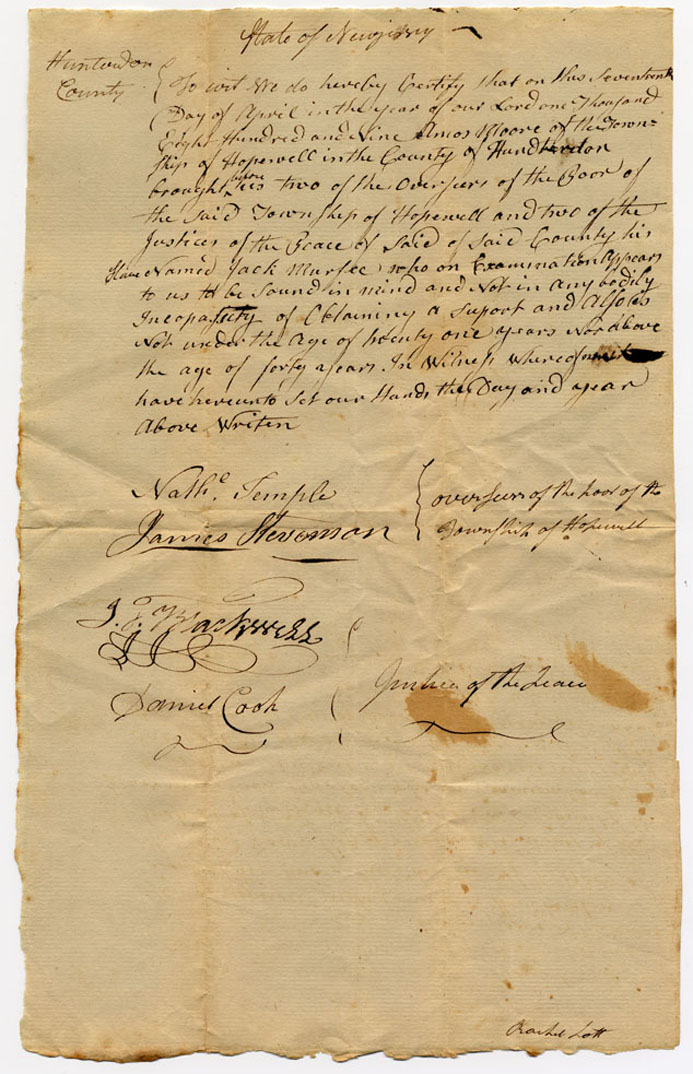 State of Newjersy
Hunterdon
County
To wit We do hereby Certify that on this Seventeenth
Day of April in the year of our Lord one Thousand
Eight Hundred and Nine Amos Moore of the Town-
ship of Hopewell in the County of Hundterdon
brought before us two of the Overseers of the Poor of
the said Township of Hopewell and two of the
Justices of the Peace of Said of Said County his
Slave Named Jack who on Examination Appears
to us to be Sound in mind and Not in Any bodily
Incopassity of Obtaining a Suport and Also is
Not under the Age of twenty one years Nor Above
the age of forty years In Witness whereof we
have hereunto Set our Hands the Day and year
Above Writen
Nathl. Temple
overseers of the Poor of the
James Stevenson
Township of Hopewell
Blackwell
Daniel Cook
Justices of the Peace
Rachel Lott